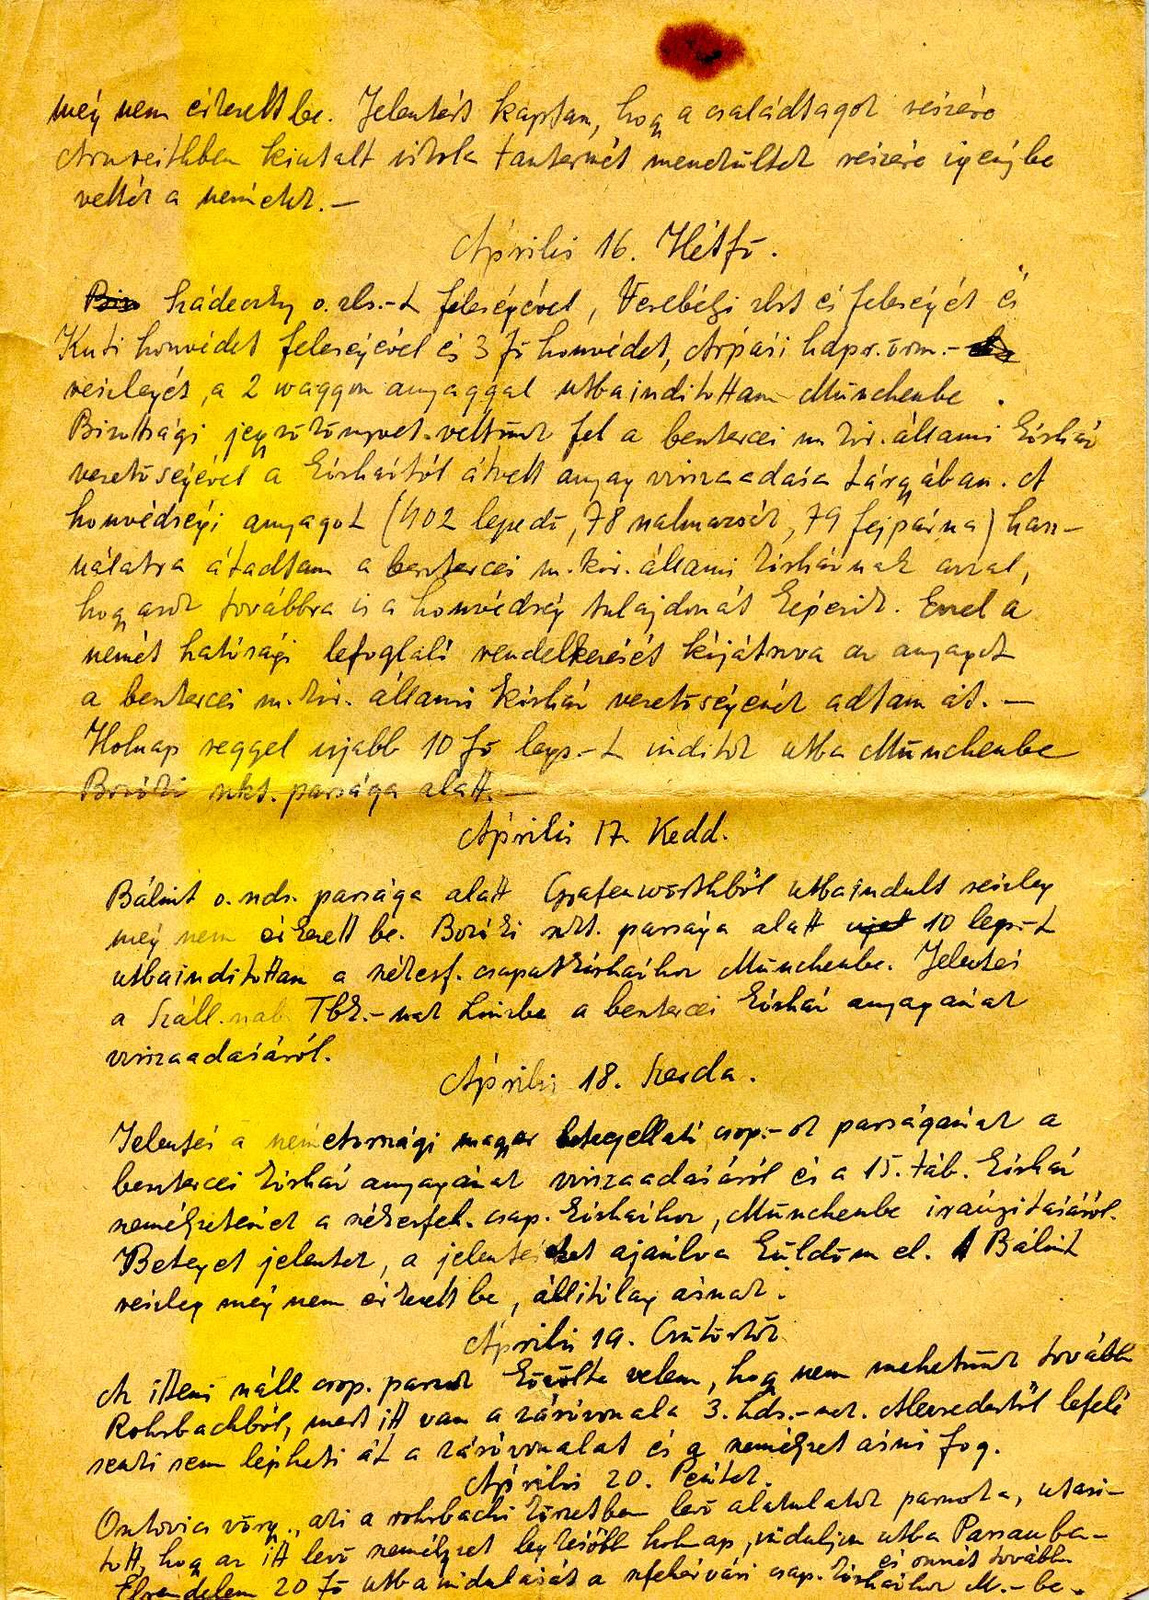 még nem érkezett be. Jelentést kaptam, hogy a családtagok részére
kiutalt iskola tantermét menekültek részére igénybe
vették a németek. —
Április 16. Hétfő.
Szádeczky o. zls.-t feleségével, Verebélyi zlst és feleségét és
Kuti honvédet feleségével és 3 fő honvédet, Árpási hdpr. őrm.-
részlegét, a 2 waggon anyaggal utbaindítottam Münchenbe.
Bizottsági jegyzőkönyvet vettünk fel a beszterczei m. kir. állami Kórház
vezetőségével a Kórháztól átvett anyag visszaadása tárgyában. A
honvédségi anyagot (402 lepedő, 78 szalmazsák, 79 fejpárna) hasz-
nálatra átadtam a beszterczei m. kir. állami Kórháznak azzal,
hogy azok továbbra is a honvédség tulajdonát képezik. Ezzel a
német hatósági lefoglaló rendelkezését kijátszva az anyagot
a beszterczei m. kir. állami Kórház vezetőségének adtam át. —
Holnap reggel ujabb 10 fő legs.-t inditok utba Münchenbe
Bozóki szkt. parsága alatt. —
Április 17. Kedd.
Bálint o. parsága alatt Grafenwörthből utbaindult részleg
még nem érkezett be. Bozóki szkt. parsága alatt 10 legs.-t
utbaindítottam a székesf. csapatkórházhoz Münchenbe. Jelentés
a Száll. Tbk.-nak Linzbe a beszterczei Kórház anyagának
visszaadásáról.
Április 18. Szerda.
Jelentés a németországi magyar betegellátó csop.-ok parságának a
beszterczei Kórház anyagának visszaadásáról és a 15. táb. Kórház
személyzetének a székesfeh. csap. Kórházhoz, Münchenbe irányításáról.
Beteget jelentek, a jelentéseket ajánlva küldöm el. A Bálint
részleg még nem érkezett be, állítólag ásnak.
Április 19. Csütörtök
Az itteni száll. csop. parnok közölte velem, hogy nem mehetünk tovább
Rohrbachból, mert itt van a záróvonala 3. hds.-nek. lefelé
senki sem lépheti át a záróvonalat és a személyzet ásni fog.
Április 20. Péntek.
Ostovics vörgy., aki a rohrbachi körzetben levő alakulatok parnoka, utasí-
tott, hogy az itt levő személyzet legkésőbb holnap induljon utba Passauba-
és onnét tovább.
Elrendelem 20 fő utbaindulását a szfehérvári csap. Kórházhoz M.-be.